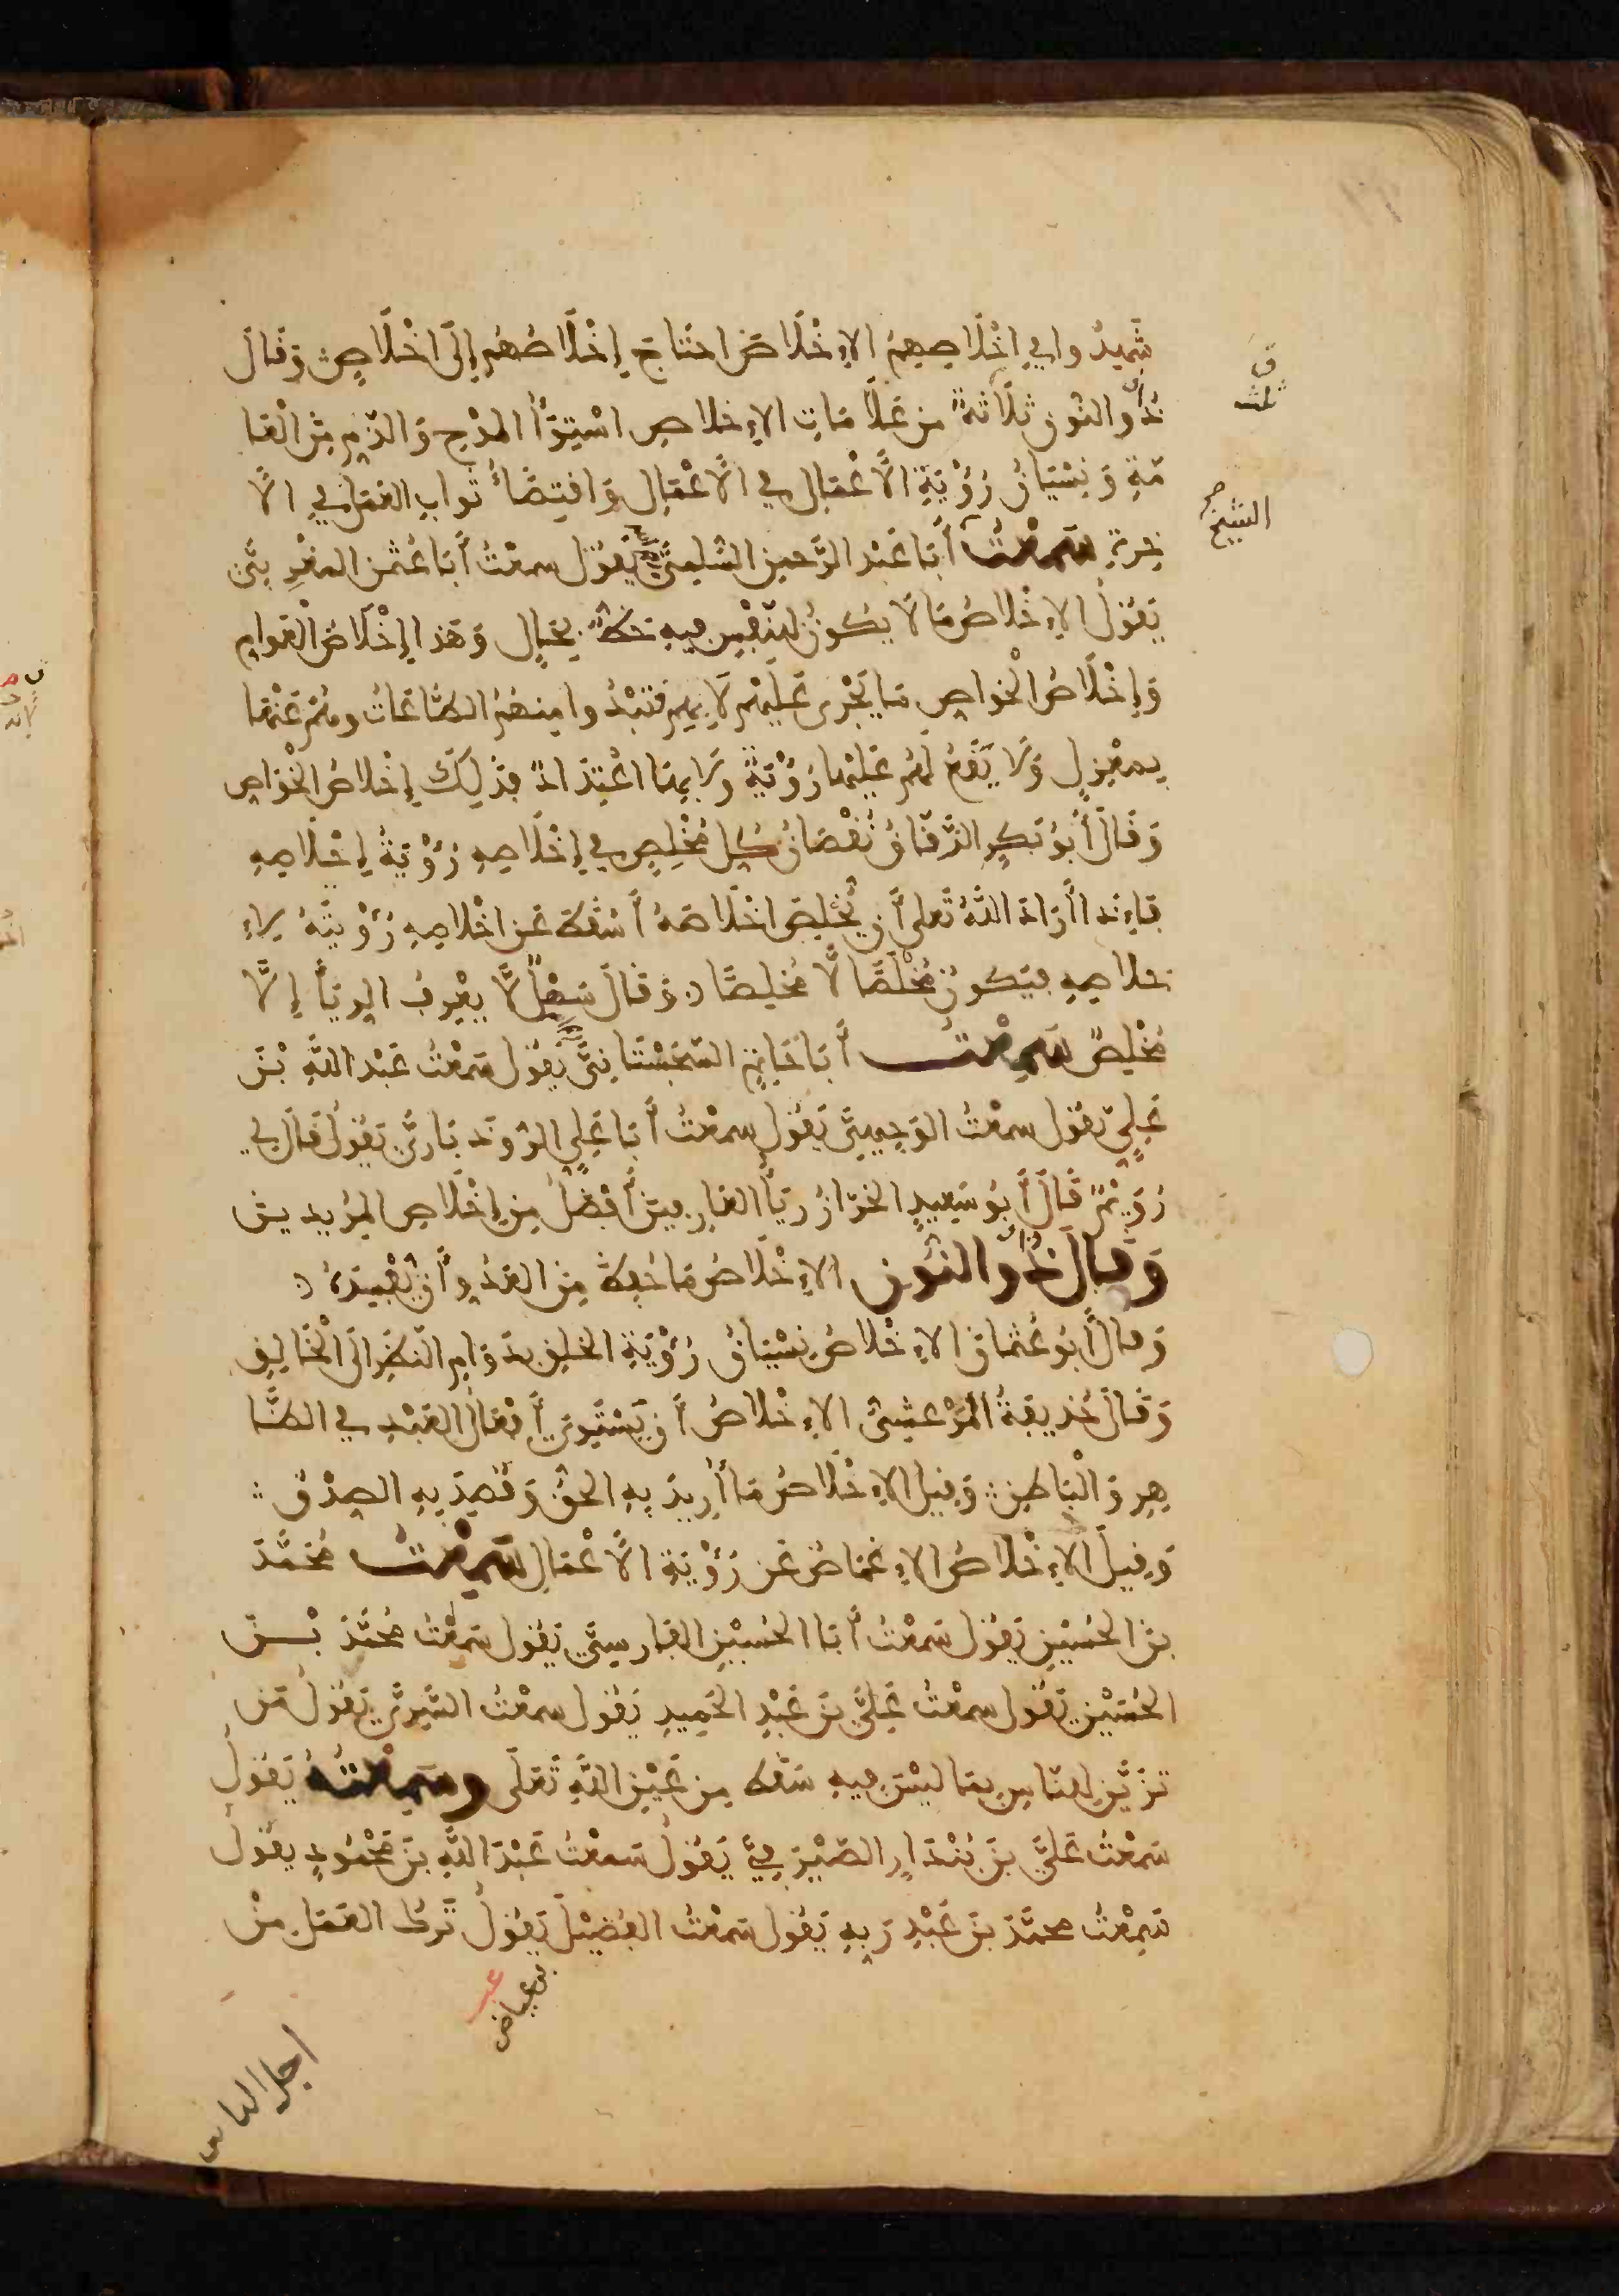 شَهِدُوا في إخْلَاصِهِمُ الاِخْلَاصَ احتَاجَ إِخْلَاصُهُم إِلَى اخْلَاصٍ وَقَالَ
ذُو النُّون ثَلَاثَةٌ مِن عَلَامَاتِ الاِخلاصِ اسْتِوَاُ المَدْحِ وَالذَّمِ مِنَ الْعَا
مَّةِ وَنِسْيَانُ رُؤْيَةِ الَاعْمَالِ فِي الَاعْمَالِ وَاقتِضَاُ ثَوابِ العَمَلِ فِي الَا
خِرَةِ سَمِعْتُ أَبَا عَبْدِ الرَّحمنِ السُّلَمِيَّ يَقُول سمعْتُ أَبَا عُثْمٰنَ المغْرِبِيَّ
يَقُولُ الاِخْلاصُ مَا لَا يَكُونُ لِلنَّفْسِ فِيهِ حَظٌّ بِحَالٍ وَهَذا إِخْلَاصُ الْعَوامِ
وَإِخْلَاصُ الْخَواصِ مَا يَجْرِى عَلَيْهِم لَا بِهِم فَتَبْدُوا مِنهُمُ الطَّاعَاتُ وهُمْ عَنْهَا
بِمَعْزِلٍ وَلَا يَقَعُ لَهُم عَلَيْهَا رُؤْيَةٌ وَلَا بِهَا اعْتِدَادٌ فذَلِكَ إِخْلَاصُ الْخَوَاصِ
وَقَالَ أَبُو بَكرٍ الدَّقَّاقُ نُقْصَانُ كُلِ مُخْلِصٍ فِي إِخْلَاصِهِ رُؤْيَةُ إِخْلَاصِهِ
فَإِذَا أَرَادَ اللَّهُ تَعلى أَن يُخْلِصَ اخْلَاصَهُ أَسْقَطَ عَن اخْلاصِهِ رُؤْيَتَهُ لِاِ
خلاصِهِ فيَكونُ مُخْلَصًا لَّا مُخلِصًا وَقَالَ سَهْلٌ لَّا يعْرِفُ الرِيَآَ إِلَّا
مُخْلِصٌ سَمِعْتُ أَبَا حَاتِمٍ السِّجِسْتَانِيَّ يَقُول سَمِعْتُ عَبْدَ اللَّهِ بْنَ
عَلِيٍّ يَقُول سمعْتُ الوَجِيهِيَّ يَقُولُ سمعْتُ أَبَا عَلِيٍّ الرُّوذبَارِيَّ يَقُولُ قَالَ لِي
رُوَيْمٌ قَالَ أَبُو سَعِيدٍ الخَرَّازُ رِيَاُ العَارِفِينَ أَفْضَلُ مِن إِخْلَاصِ المُرِيدِينَ
وَقَالَ ذُو النُّونِ الاِخْلَاصُ مَا حُفِظَ مِنَ العَدُوِ أَن يُفْسِدَهُ
وَقَالَ أَبُو عُثْمَانَ الاِخْلاصُ نِسْيَانُ رُؤْيَةِ الخَلقِ بِدَوَامِ النَّظَرِ إِلَى الْخَالِقِ
وَقَالَ حُذَيفَةُ المَرْعَشِيُّ الاِخْلاصُ أَن يَسْتَوِيَ أَفْعَالُ العَبْدِ فِي الظَّا
هِرِ وَالْبَاطِنِ وَقِيلَ الاِخْلَاصُ مَا أُرِيدَ بِهِ الحَقُّ وَقُصِدَ بِهِ الصِدْقُ
وَقِيلَ الاِخْلاصُ الاِغمَاضُ عَن رُؤْيَةِ الَاعْمَالِ سَمِعْتُ مُحَمَّدَ
بنَ الحُسَيْنِ يَقُول سَمعْتُ أَبَا الحُسَيْنِ الفَارِسِيَّ يَقُول سَمِعْتُ مُحَمَّدَ بْنَ
الحُسَيْنِ يَقُول سمعْتُ عَلِيَّ بنَ عَبْدِ الحَمِيدِ يَقُول سمعْتُ السَّرِيَّ يَقُولُ مَن
تَزَيَّنَ لِلنَّاسِ بِمَا لَيْسَ فِيهِ سَقَطَ مِن عَيْنِ اللَّهِ تَعَلَى وسَمِعْتُهُ يَقُولُ
سَمِعْتُ عَلِيَّ بنَ بُنْدَارٍ الصَّيْرَفِيَّ يَقُولُ سَمعْتُ عَبْدَ اللَّهِ بنَ مَحْمُودٍ يقُولُ
سَمِعْتُ محمَّدَ بنَ عَبْدِ رَبِهِ يَقُول سَمِعْتُ الفُضَيْلَ يَقُولُ تَركُ العَمَلِ مِنْ
ق
ثلث
الشيخ
بن عياض
اجل الناس